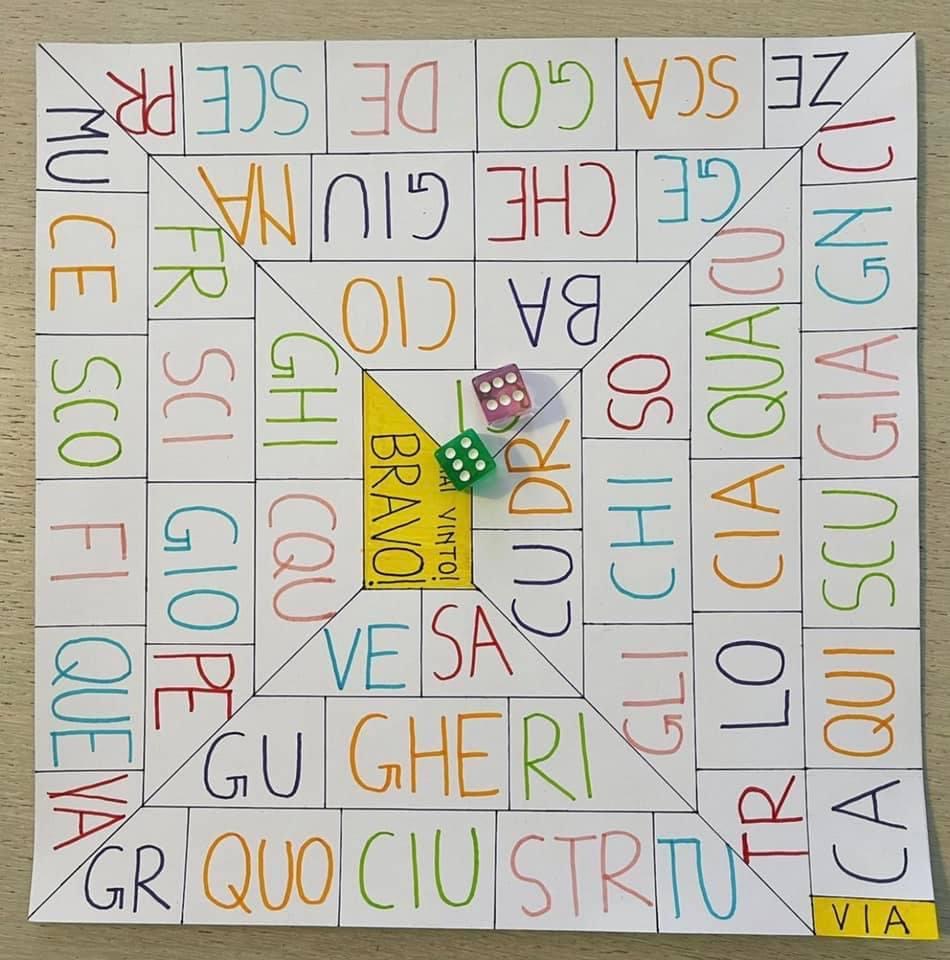 VIA
CA
QUI
SCU
GIA
GN
CI
ZE
SCA
GO
DE
SCE
PR
MU
CE
SCO
FI
QUE
VA
GR
QUO
CIU
STR
TU
TR
LO
CIA
QUA
CU
GE
CHE
GIU
NA
FR
SCI
GIO
PE
GU
GHE
RI
GLI
CHI
SO
BA
CIO
GHI
CQU
VE
SA
CU
DR
VINTO!
BRAVO!